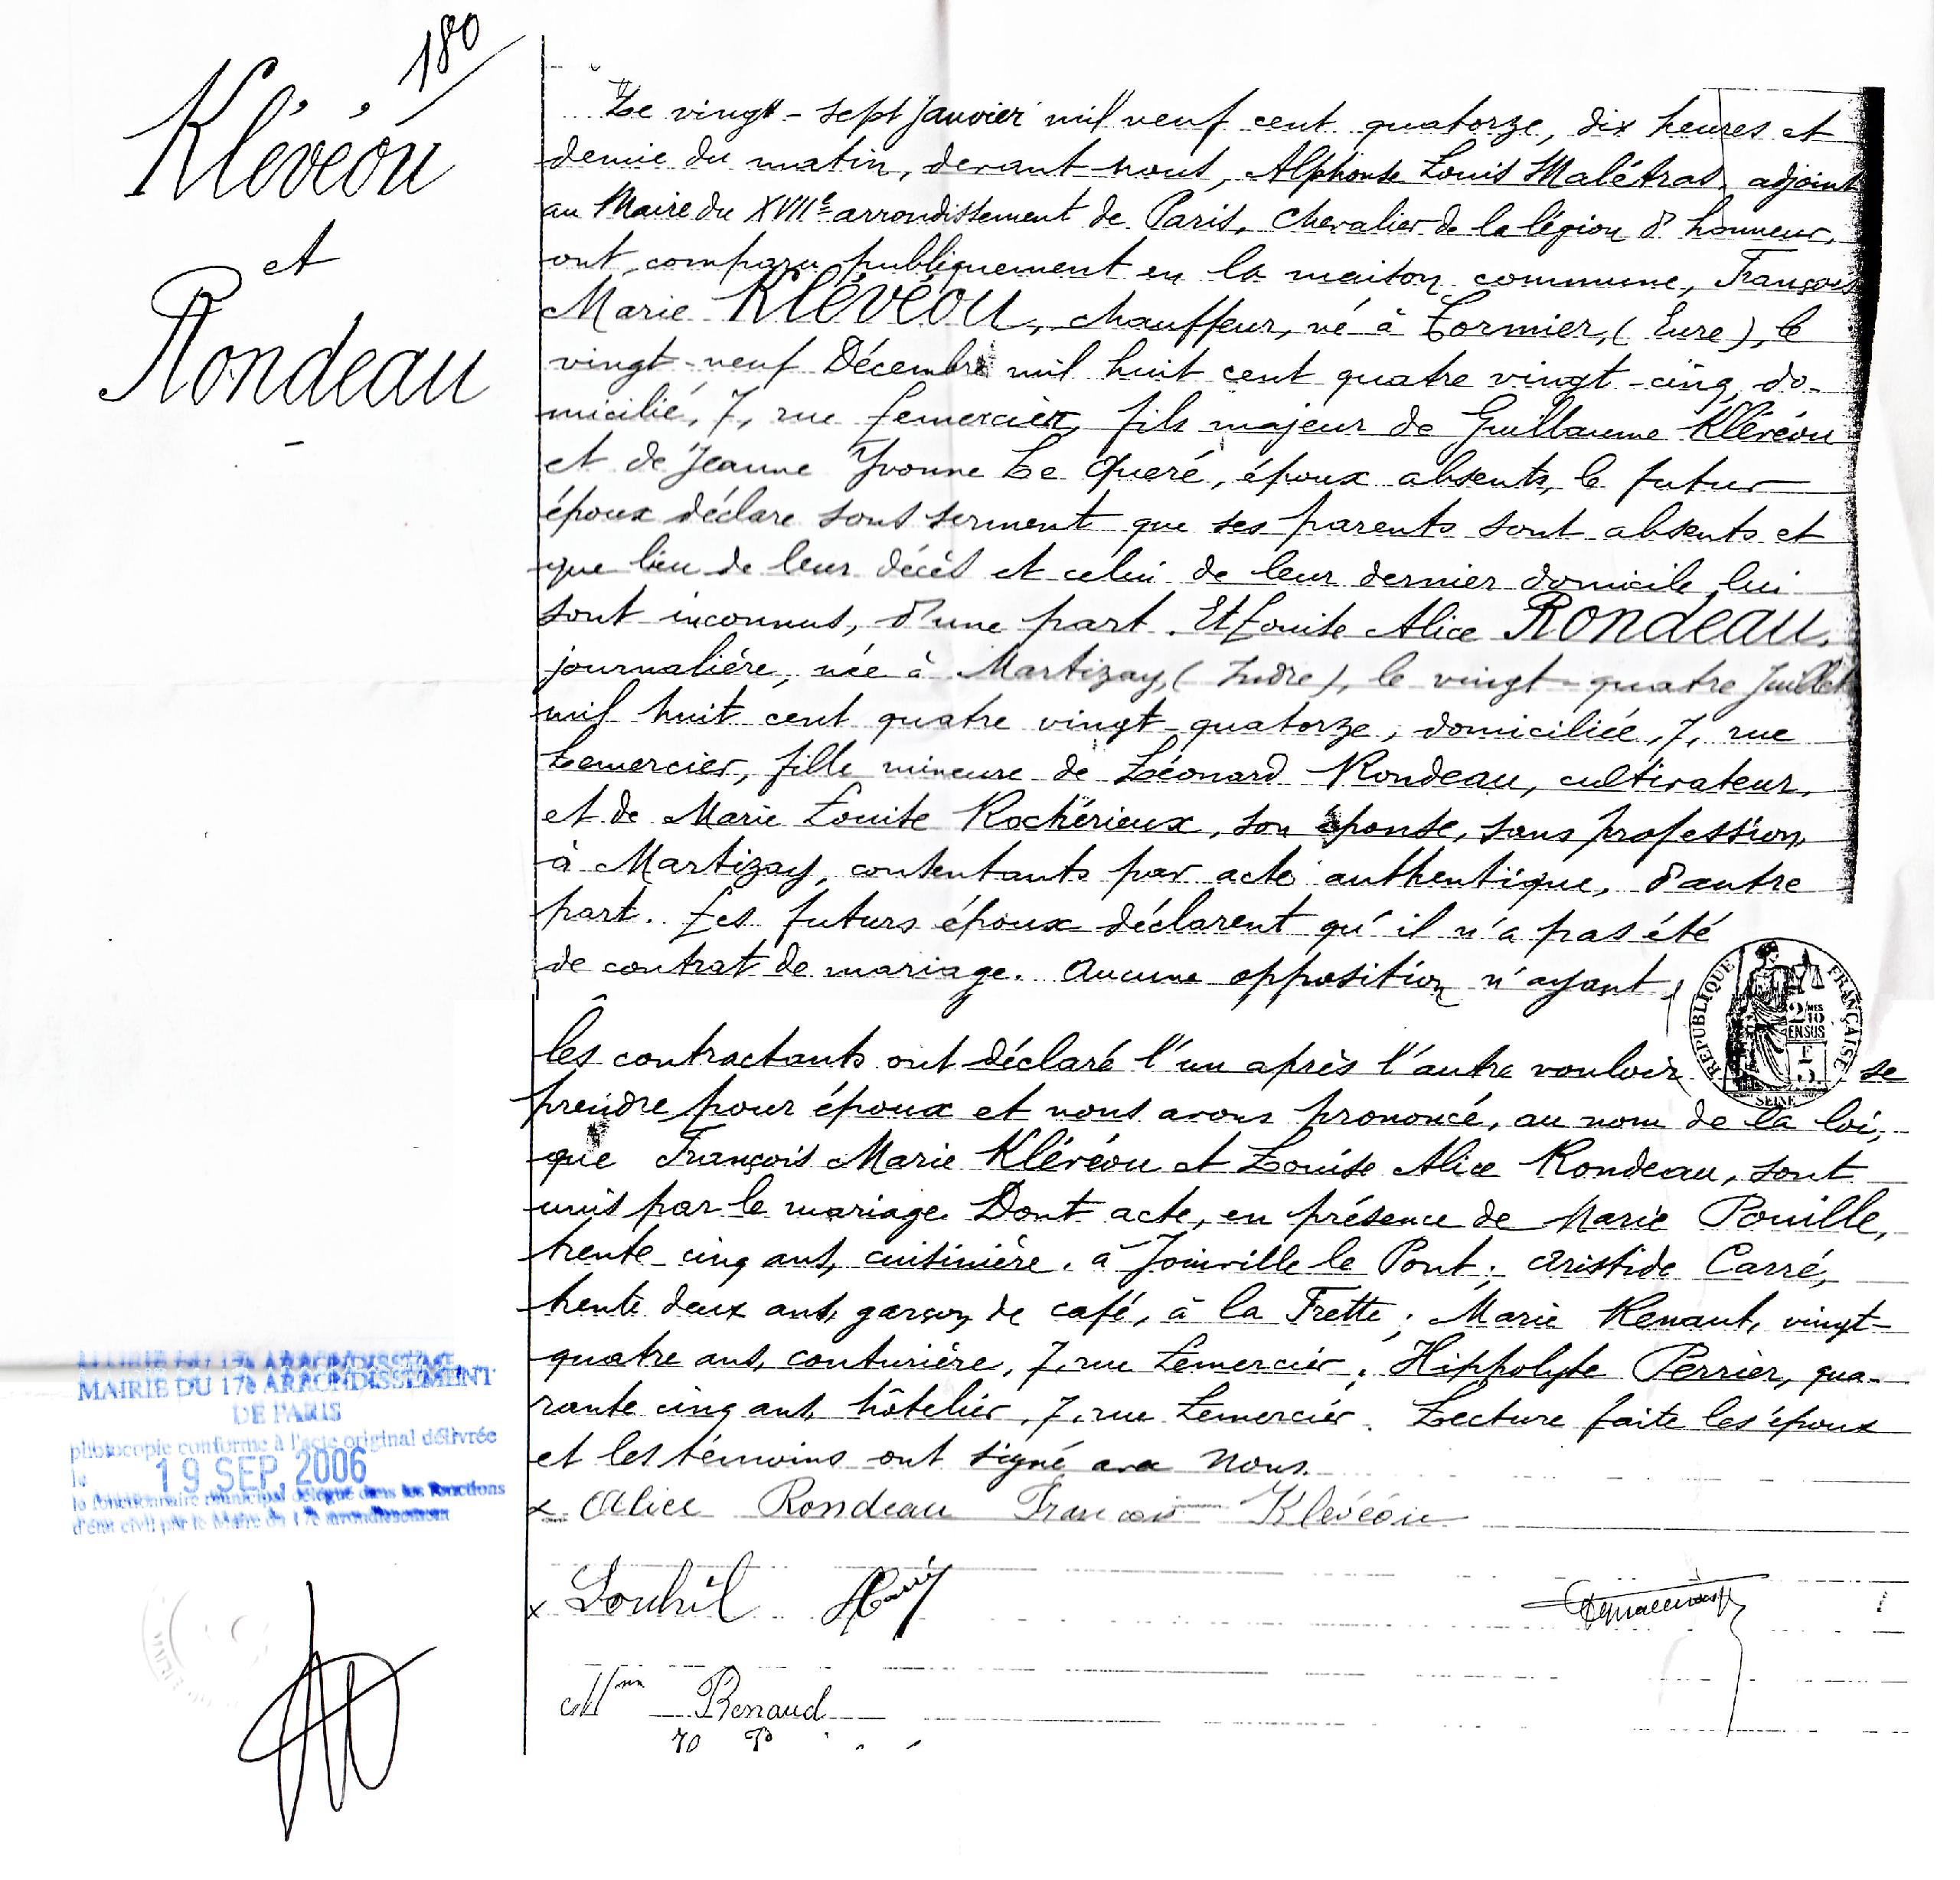 180
Klévéou
et
Rondeau
Le vingt-sept Janvier mil neuf cent quatorze, dix heures et
demie du matin, devant nous, Alphonse Louis Malétras, adjoint
au Maire du XVIIe arrondissement de Paris, Chevalier de la légion d'honneur,
ont comparu publiquement en la maison commune, François
Marie Klévéou, chauffeur, né à Cormier, (Eure), le
vingt-neuf Décembre mil huit cent quatre vingt-cinq, do-
micilié, 7, rue Lemercier, fils majeur de Guillaume Klévéou
et de Jeanne Yvonne Le Queré, époux absents, le futur
époux déclare sous serment que ses parents sont absents et
que lieu de leur décès et celui de leur dernier domicile lui
sont inconnus, d'une part. Et Louise Alice Rondeau,
journalière, née à Martizay, (Indre), le vingt-quatre Juillet
mil huit cent quatre vingt-quatorze, domiciliée, 7, rue
Lemercier, fille mineure de Léonard Rondeau, cultivateur,
et de Marie Louise Rochérieux, son épouse, sans profession,
à Martizay, consentants par acte authentique, d'autre
part. Les futurs époux déclarent qu'il n'a pas été
de contrat de mariage. Aucune opposition n'ayant
les contractants ont déclaré l'un après l'autre vouloir se
prendre pour époux et nous avons prononcé, au nom de la loi,
que François Marie Klévéou et Louise Alice Rondeau, sont
unis par le mariage. Dont acte, en présence de Marie Pouille,
trente-cinq ans, cuisinière, à Joinville le Pont; Aristide Carré,
trente deux ans, garçon de café, à la Frette; Marie Renaut, vingt-
quatre ans, couturière, 7, rue Lemercier; Hippolyte Perrier, qua-
rante cinq ans, hôtelier, 7, rue Lemercier. Lecture faite les époux
et les témoins ont signé avec Nous.
x Alice Rondeau François Klévéou
x
Renaud
RÉPUBLIQUE FRANÇAISE
2 MES
10
EN SUS
SEINE
MAIRIE DU 17e ARRONDISSEMENT
DE PARIS
photocopie conforme à l'acte original délivrée
le 19 SEP. 2006
le fonctionnaire municipal délégué dans les fonctions
d'état civil par le Maire du 17e arrondissement